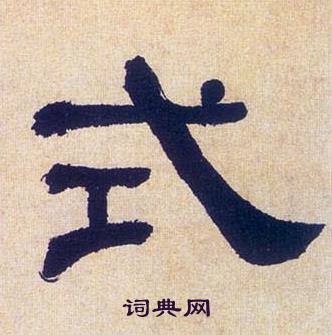 式
词典网